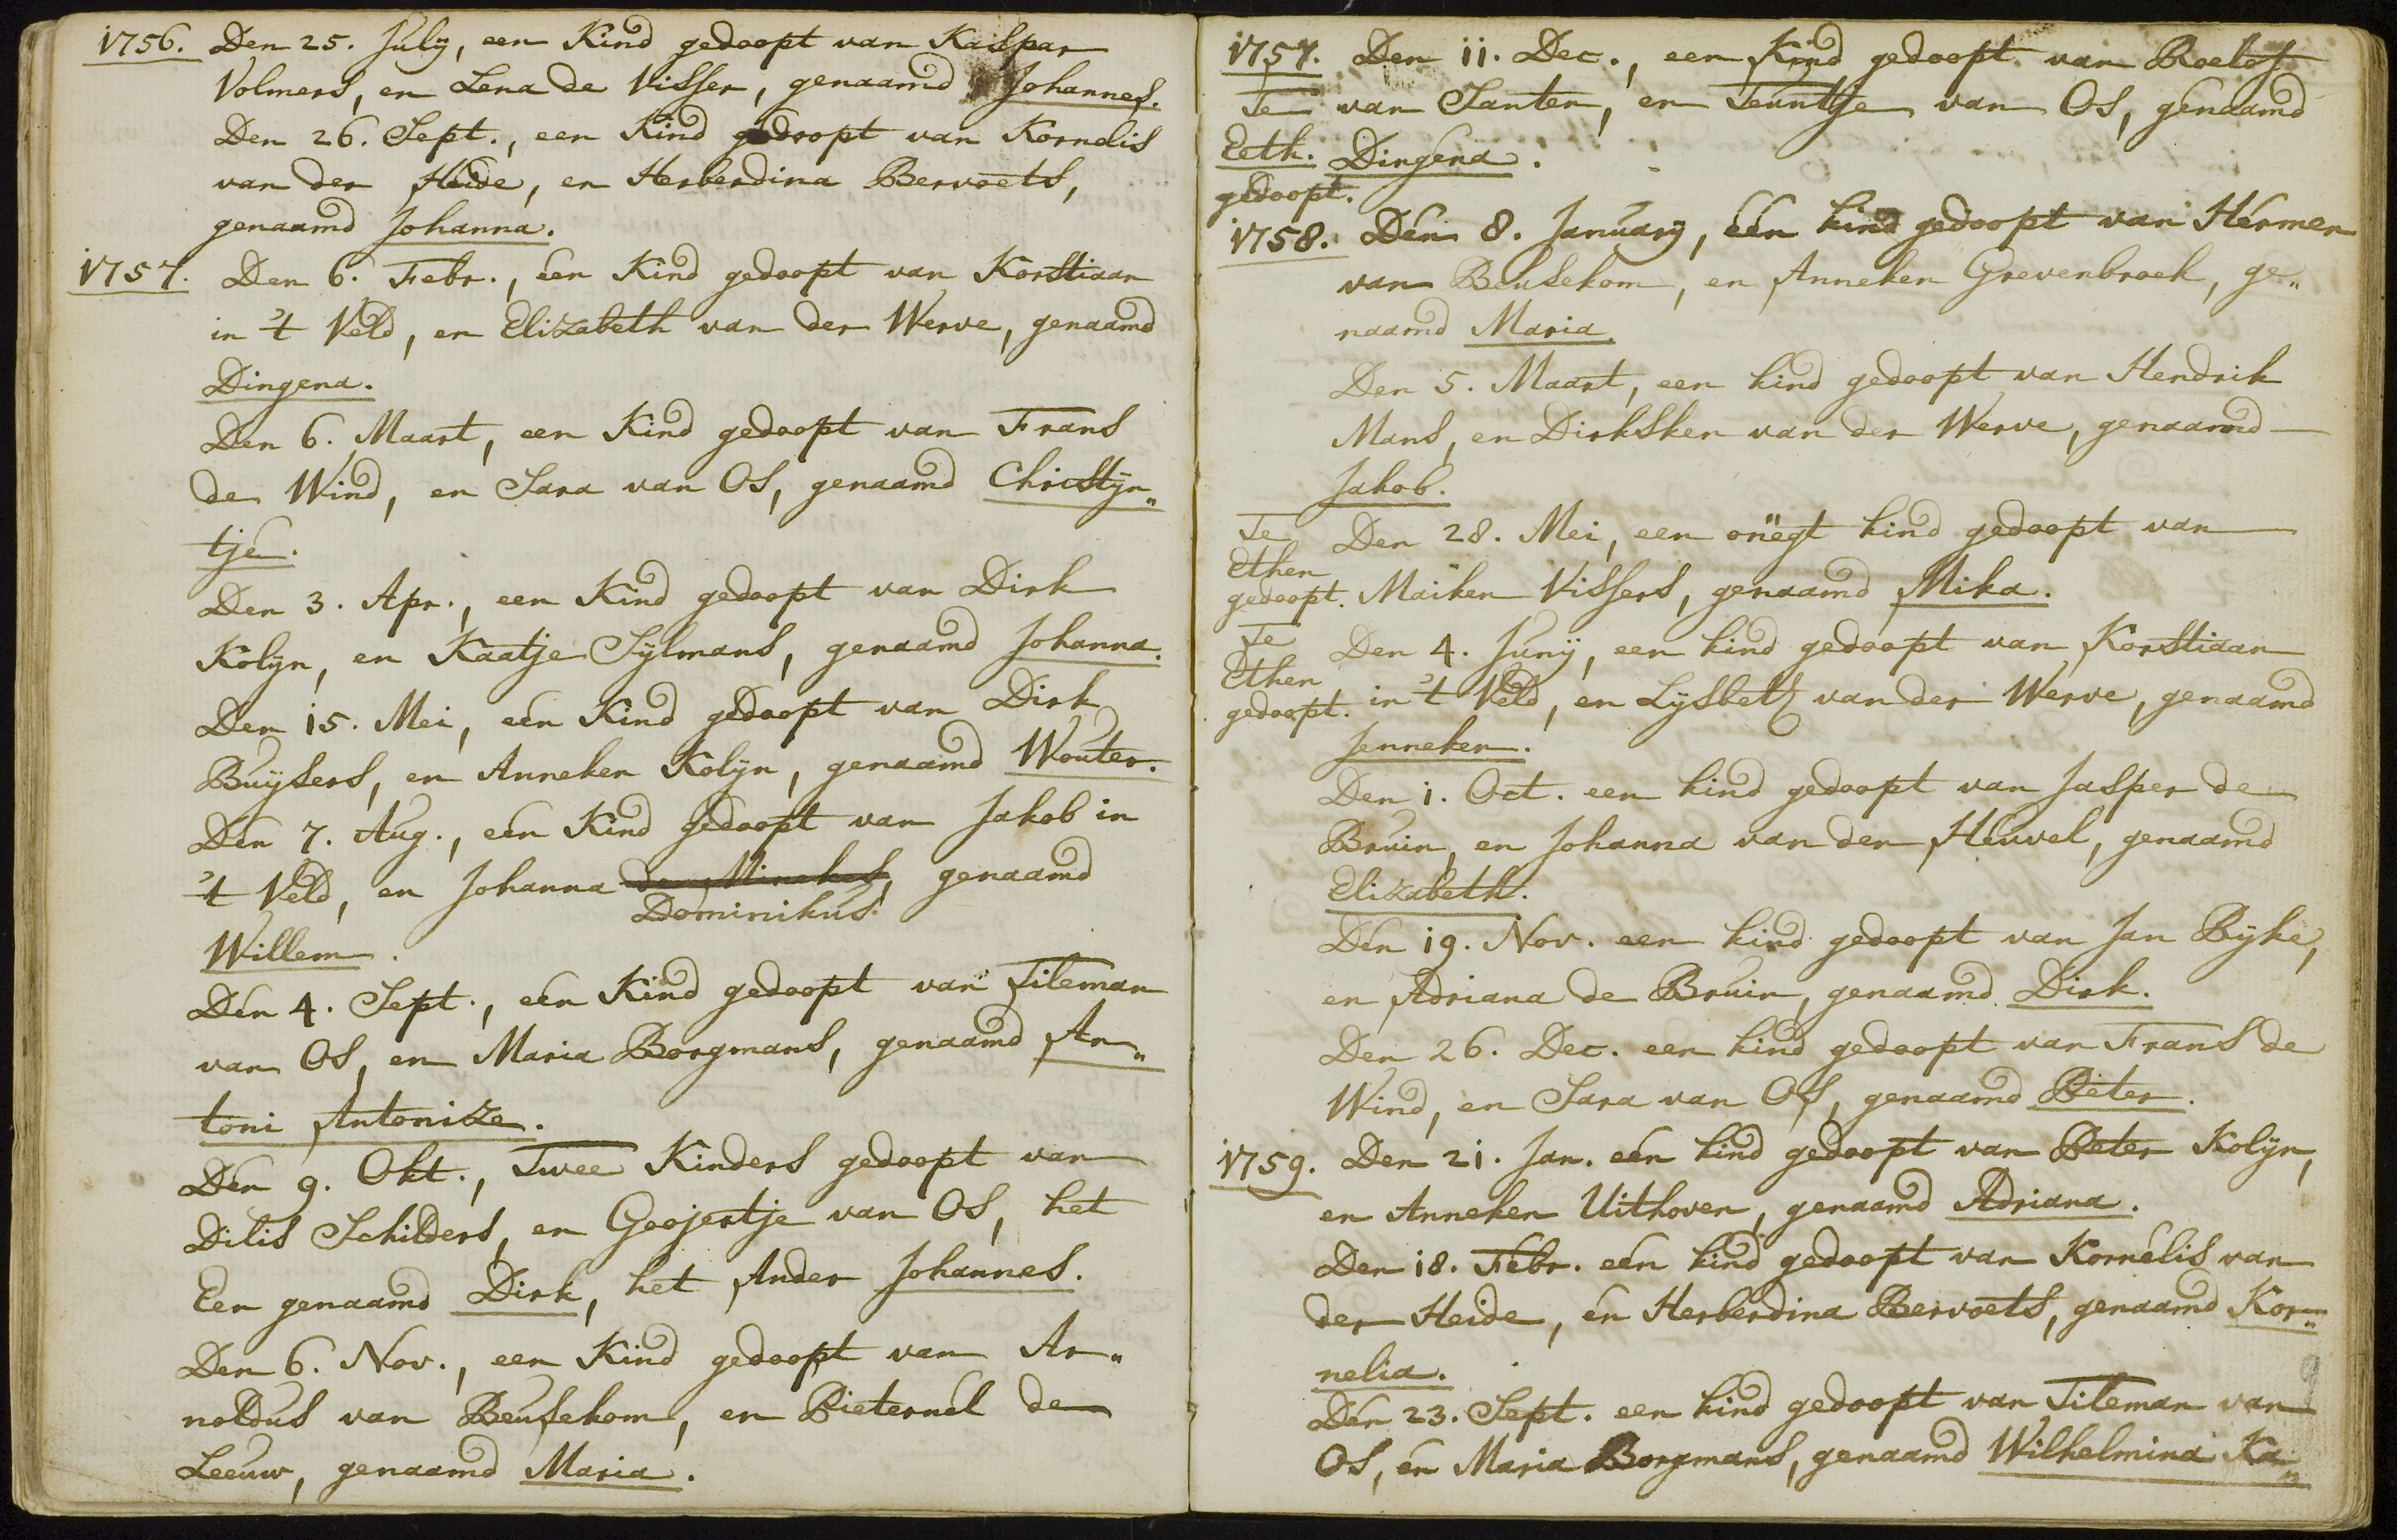 1756. Den 25. July, een Kind gedoopt van Kaspar
Volmers, en Lena de Visser, genaamd Johannes.
Den 26. Sept., een Kind gedoopt van Kornelis
van der Heide, en Herberdina Bervoets,
genaamd Johanna.
1757. Den 6. Febr., een Kind gedoopt van Korstiaan
in 't Veld, en Elizabeth van der Werve, genaamd
Dingena.
Den 6. Maart, een Kind gedoopt van Frans
de Wind, en Sara van Os, genaamd Christyn„
tje.
Den 3. Apr., een Kind gedoopt van Dirk
Kolyn, en Kaatje Sylmans, genaamd Johanna.
Den 15. Mei, een Kind gedoopt van Dirk
Buysers, en Anneken Kolyn, genaamd Wouter.
Den 7. Aug., een Kind gedoopt van Jakob in
't Veld, en Johanna de Minekus, genaamd
Dominikus.
Willem.
Den 4. Sept., een Kind gedoopt van Tileman
van Os, en Maria Borgmans, genaamd An„
toni Antonisze.
Den 9. Okt., Twee Kinders gedoopt van
Dilis Schilders, en Goojertje van Os, het
Een genaamd Dirk, het Ander Johannes.
Den 6. Nov., een Kind gedoopt van Ar„
noldus van Beusekom, en Pieternel de
Leeuw, genaamd Maria.
1757. Den 11. Dec., een Kind gedoopt van Roelof
Te van Santen, en Teuntje van Os, genaamd
Eeth. Dingena.
gedoopt.
1758. Den 8. January, een kind gedoopt van Hermen
van Beusekom, en Anneken Grevenbroek, ge„
naamd Maria.
Den 5. Maart, een kind gedoopt van Hendrik
Mans, en Dirksken van der Werve, genaamd
Jakob.
Te Den 28. Mei, een onëgt kind gedoopt van
Ethen
gedoopt. Maiken Vissers, genaamd Mika.
Te Den 4. Juny, een kind gedoopt van Korstiaan
Ethen
gedoopt. in 't Veld, en Lysbeth van der Werve, genaamd
Jenneken.
Den 1. Oct. een kind gedoopt van Jasper de
Bruin, en Johanna van den Heuvel, genaamd
Elizabeth.
Den 19. Nov. een kind gedoopt van Jan Ryke,
en Adriana de Bruin, genaamd Dirk.
Den 26. Dec. een kind gedoopt van Frans de
Wind, en Sara van Os, genaamd Pieter.
1759. Den 21. Jan. een kind gedoopt van Peter Kolyn,
en Anneken Uithoven, genaamd Adriana.
Den 18. Febr. een kind gedoopt van Kornelis van
der Heide, en Herberdina Bervoets, genaamd Kor„
nelia.
Den 23. Sept. een kind gedoopt van Tileman van
Os, en Maria Borgmans, genaamd Wilhelmina Ka„